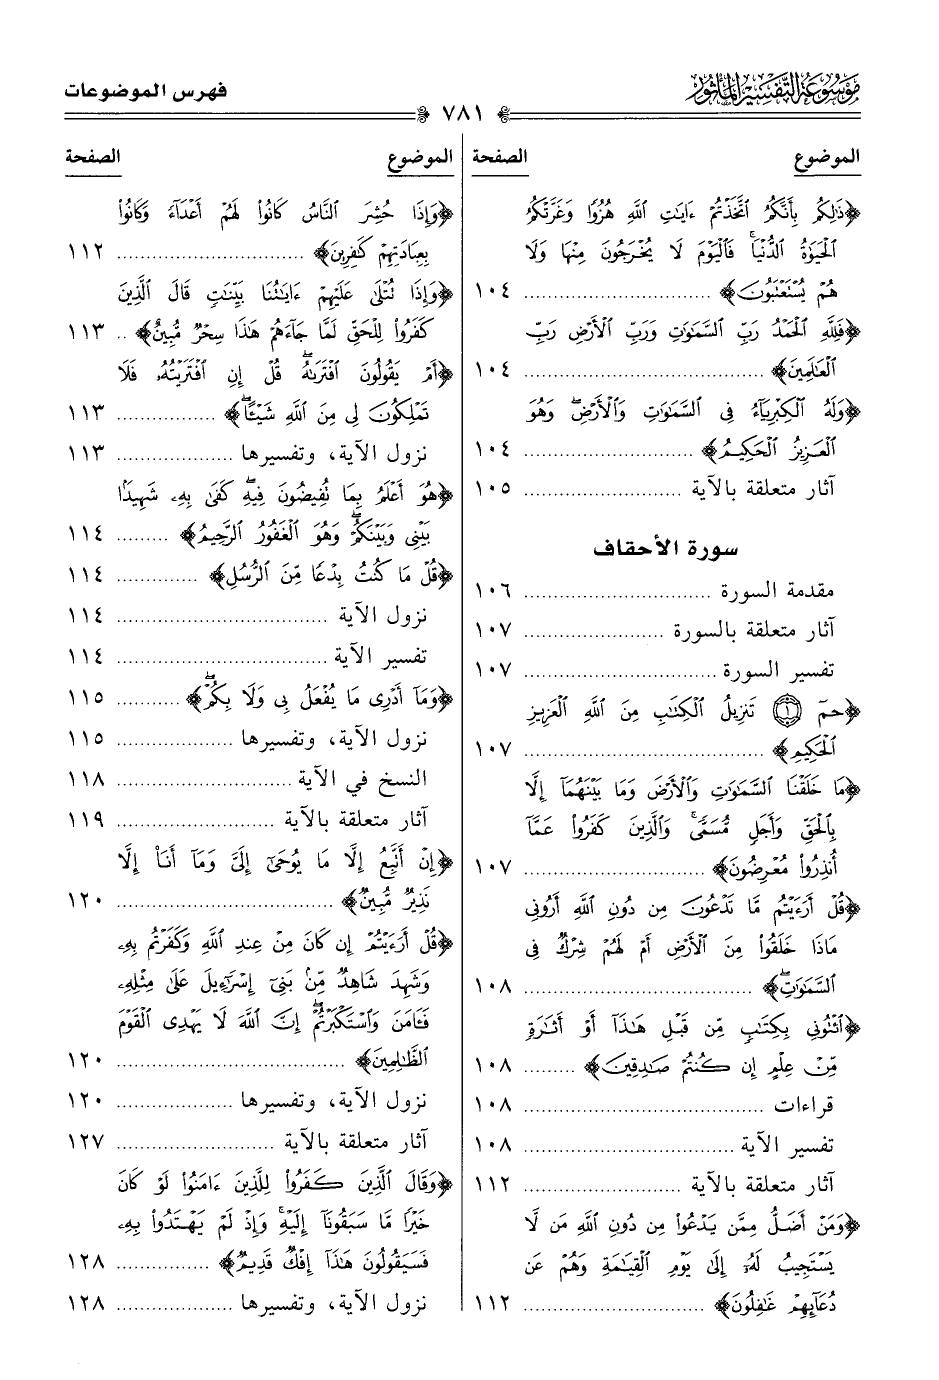 موسوعة التفسير المأثور
فهرس الموضوعات
٧٨١
الموضوع الصفحة
﴿ذَٰلِكُم بِأَنَّكُمُ ٱتَّخَذۡتُمۡ ءَايَٰتِ ٱللَّهِ هُزُوٗا وَغَرَّتۡكُمُ
ٱلۡحَيَوٰةُ ٱلدُّنۡيَاۚ فَٱلۡيَوۡمَ لَا يُخۡرَجُونَ مِنۡهَا وَلَا
هُمۡ يُسۡتَعۡتَبُونَ﴾ .............................. ١٠٤
﴿فَلِلَّهِ ٱلۡحَمۡدُ رَبِّ ٱلسَّمَٰوَٰتِ وَرَبِّ ٱلۡأَرۡضِ رَبِّ
ٱلۡعَٰلَمِينَ﴾ .............................. ١٠٤
﴿وَلَهُ ٱلۡكِبۡرِيَآءُ فِي ٱلسَّمَٰوَٰتِ وَٱلۡأَرۡضِۖ وَهُوَ
ٱلۡعَزِيزُ ٱلۡحَكِيمُ﴾ .............................. ١٠٤
آثار متعلقة بالآية .............................. ١٠٥
سورة الأحقاف
مقدمة السورة .............................. ١٠٦
آثار متعلقة بالسورة .............................. ١٠٧
تفسير السورة .............................. ١٠٧
﴿حمٓ ١ تَنزِيلُ ٱلۡكِتَٰبِ مِنَ ٱللَّهِ ٱلۡعَزِيزِ
ٱلۡحَكِيمِ﴾ .............................. ١٠٧
﴿مَا خَلَقۡنَا ٱلسَّمَٰوَٰتِ وَٱلۡأَرۡضَ وَمَا بَيۡنَهُمَآ إِلَّا
بِٱلۡحَقِّ وَأَجَلٖ مُّسَمّٗىۚ وَٱلَّذِينَ كَفَرُواْ عَمَّآ
أُنذِرُواْ مُعۡرِضُونَ﴾ .............................. ١٠٧
﴿قُلۡ أَرَءَيۡتُم مَّا تَدۡعُونَ مِن دُونِ ٱللَّهِ أَرُونِي
مَاذَا خَلَقُواْ مِنَ ٱلۡأَرۡضِ أَمۡ لَهُمۡ شِرۡكٞ فِي
ٱلسَّمَٰوَٰتِۖ﴾ .............................. ١٠٨
﴿ٱئۡتُونِي بِكِتَٰبٖ مِّن قَبۡلِ هَٰذَآ أَوۡ أَثَٰرَةٖ
مِّنۡ عِلۡمٍ إِن كُنتُمۡ صَٰدِقِينَ﴾ ......... ١٠٨
قراءات .............................. ١٠٨
تفسير الآية .............................. ١٠٨
آثار متعلقة بالآية .............................. ١١٢
﴿وَمَنۡ أَضَلُّ مِمَّن يَدۡعُواْ مِن دُونِ ٱللَّهِ مَن لَّا
يَسۡتَجِيبُ لَهُۥٓ إِلَىٰ يَوۡمِ ٱلۡقِيَٰمَةِ وَهُمۡ عَن
دُعَآئِهِمۡ غَٰفِلُونَ﴾ .............................. ١١٢
الموضوع الصفحة
﴿وَإِذَا حُشِرَ ٱلنَّاسُ كَانُواْ لَهُمۡ أَعۡدَآءٗ وَكَانُواْ
بِعِبَادَتِهِمۡ كَٰفِرِينَ﴾ .............................. ١١٢
﴿وَإِذَا تُتۡلَىٰ عَلَيۡهِمۡ ءَايَٰتُنَا بَيِّنَٰتٖ قَالَ ٱلَّذِينَ
كَفَرُواْ لِلۡحَقِّ لَمَّا جَآءَهُمۡ هَٰذَا سِحۡرٞ مُّبِينٌ﴾ .. ١١٣
﴿أَمۡ يَقُولُونَ ٱفۡتَرَىٰهُۖ قُلۡ إِنِ ٱفۡتَرَيۡتُهُۥ فَلَا
تَمۡلِكُونَ لِي مِنَ ٱللَّهِ شَيۡـًٔاۖ﴾ ............... ١١٣
نزول الآية، وتفسيرها .................... ١١٣
﴿هُوَ أَعۡلَمُ بِمَا تُفِيضُونَ فِيهِۖ كَفَىٰ بِهِۦ شَهِيدَۢا
بَيۡنِي وَبَيۡنَكُمۡۖ وَهُوَ ٱلۡغَفُورُ ٱلرَّحِيمُ﴾ ......... ١١٤
﴿قُلۡ مَا كُنتُ بِدۡعٗا مِّنَ ٱلرُّسُلِ﴾ ............. ١١٤
نزول الآية .............................. ١١٤
تفسير الآية .............................. ١١٤
﴿وَمَآ أَدۡرِي مَا يُفۡعَلُ بِي وَلَا بِكُمۡۖ﴾ ........... ١١٥
نزول الآية، وتفسيرها .................... ١١٥
النسخ في الآية .............................. ١١٨
آثار متعلقة بالآية .............................. ١١٩
﴿إِنۡ أَتَّبِعُ إِلَّا مَا يُوحَىٰٓ إِلَيَّ وَمَآ أَنَا۠ إِلَّا
نَذِيرٞ مُّبِينٞ﴾ .............................. ١٢٠
﴿قُلۡ أَرَءَيۡتُمۡ إِن كَانَ مِنۡ عِندِ ٱللَّهِ وَكَفَرۡتُم بِهِۦ
وَشَهِدَ شَاهِدٞ مِّنۢ بَنِيٓ إِسۡرَٰٓءِيلَ عَلَىٰ مِثۡلِهِۦ
فَـَٔامَنَ وَٱسۡتَكۡبَرۡتُمۡۚ إِنَّ ٱللَّهَ لَا يَهۡدِي ٱلۡقَوۡمَ
ٱلظَّٰلِمِينَ﴾ .............................. ١٢٠
نزول الآية، وتفسيرها .................... ١٢٠
آثار متعلقة بالآية .............................. ١٢٧
﴿وَقَالَ ٱلَّذِينَ كَفَرُواْ لِلَّذِينَ ءَامَنُواْ لَوۡ كَانَ
خَيۡرٗا مَّا سَبَقُونَآ إِلَيۡهِۚ وَإِذۡ لَمۡ يَهۡتَدُواْ بِهِۦ
فَسَيَقُولُونَ هَٰذَآ إِفۡكٞ قَدِيمٞ﴾ ............... ١٢٨
نزول الآية، وتفسيرها .................... ١٢٨